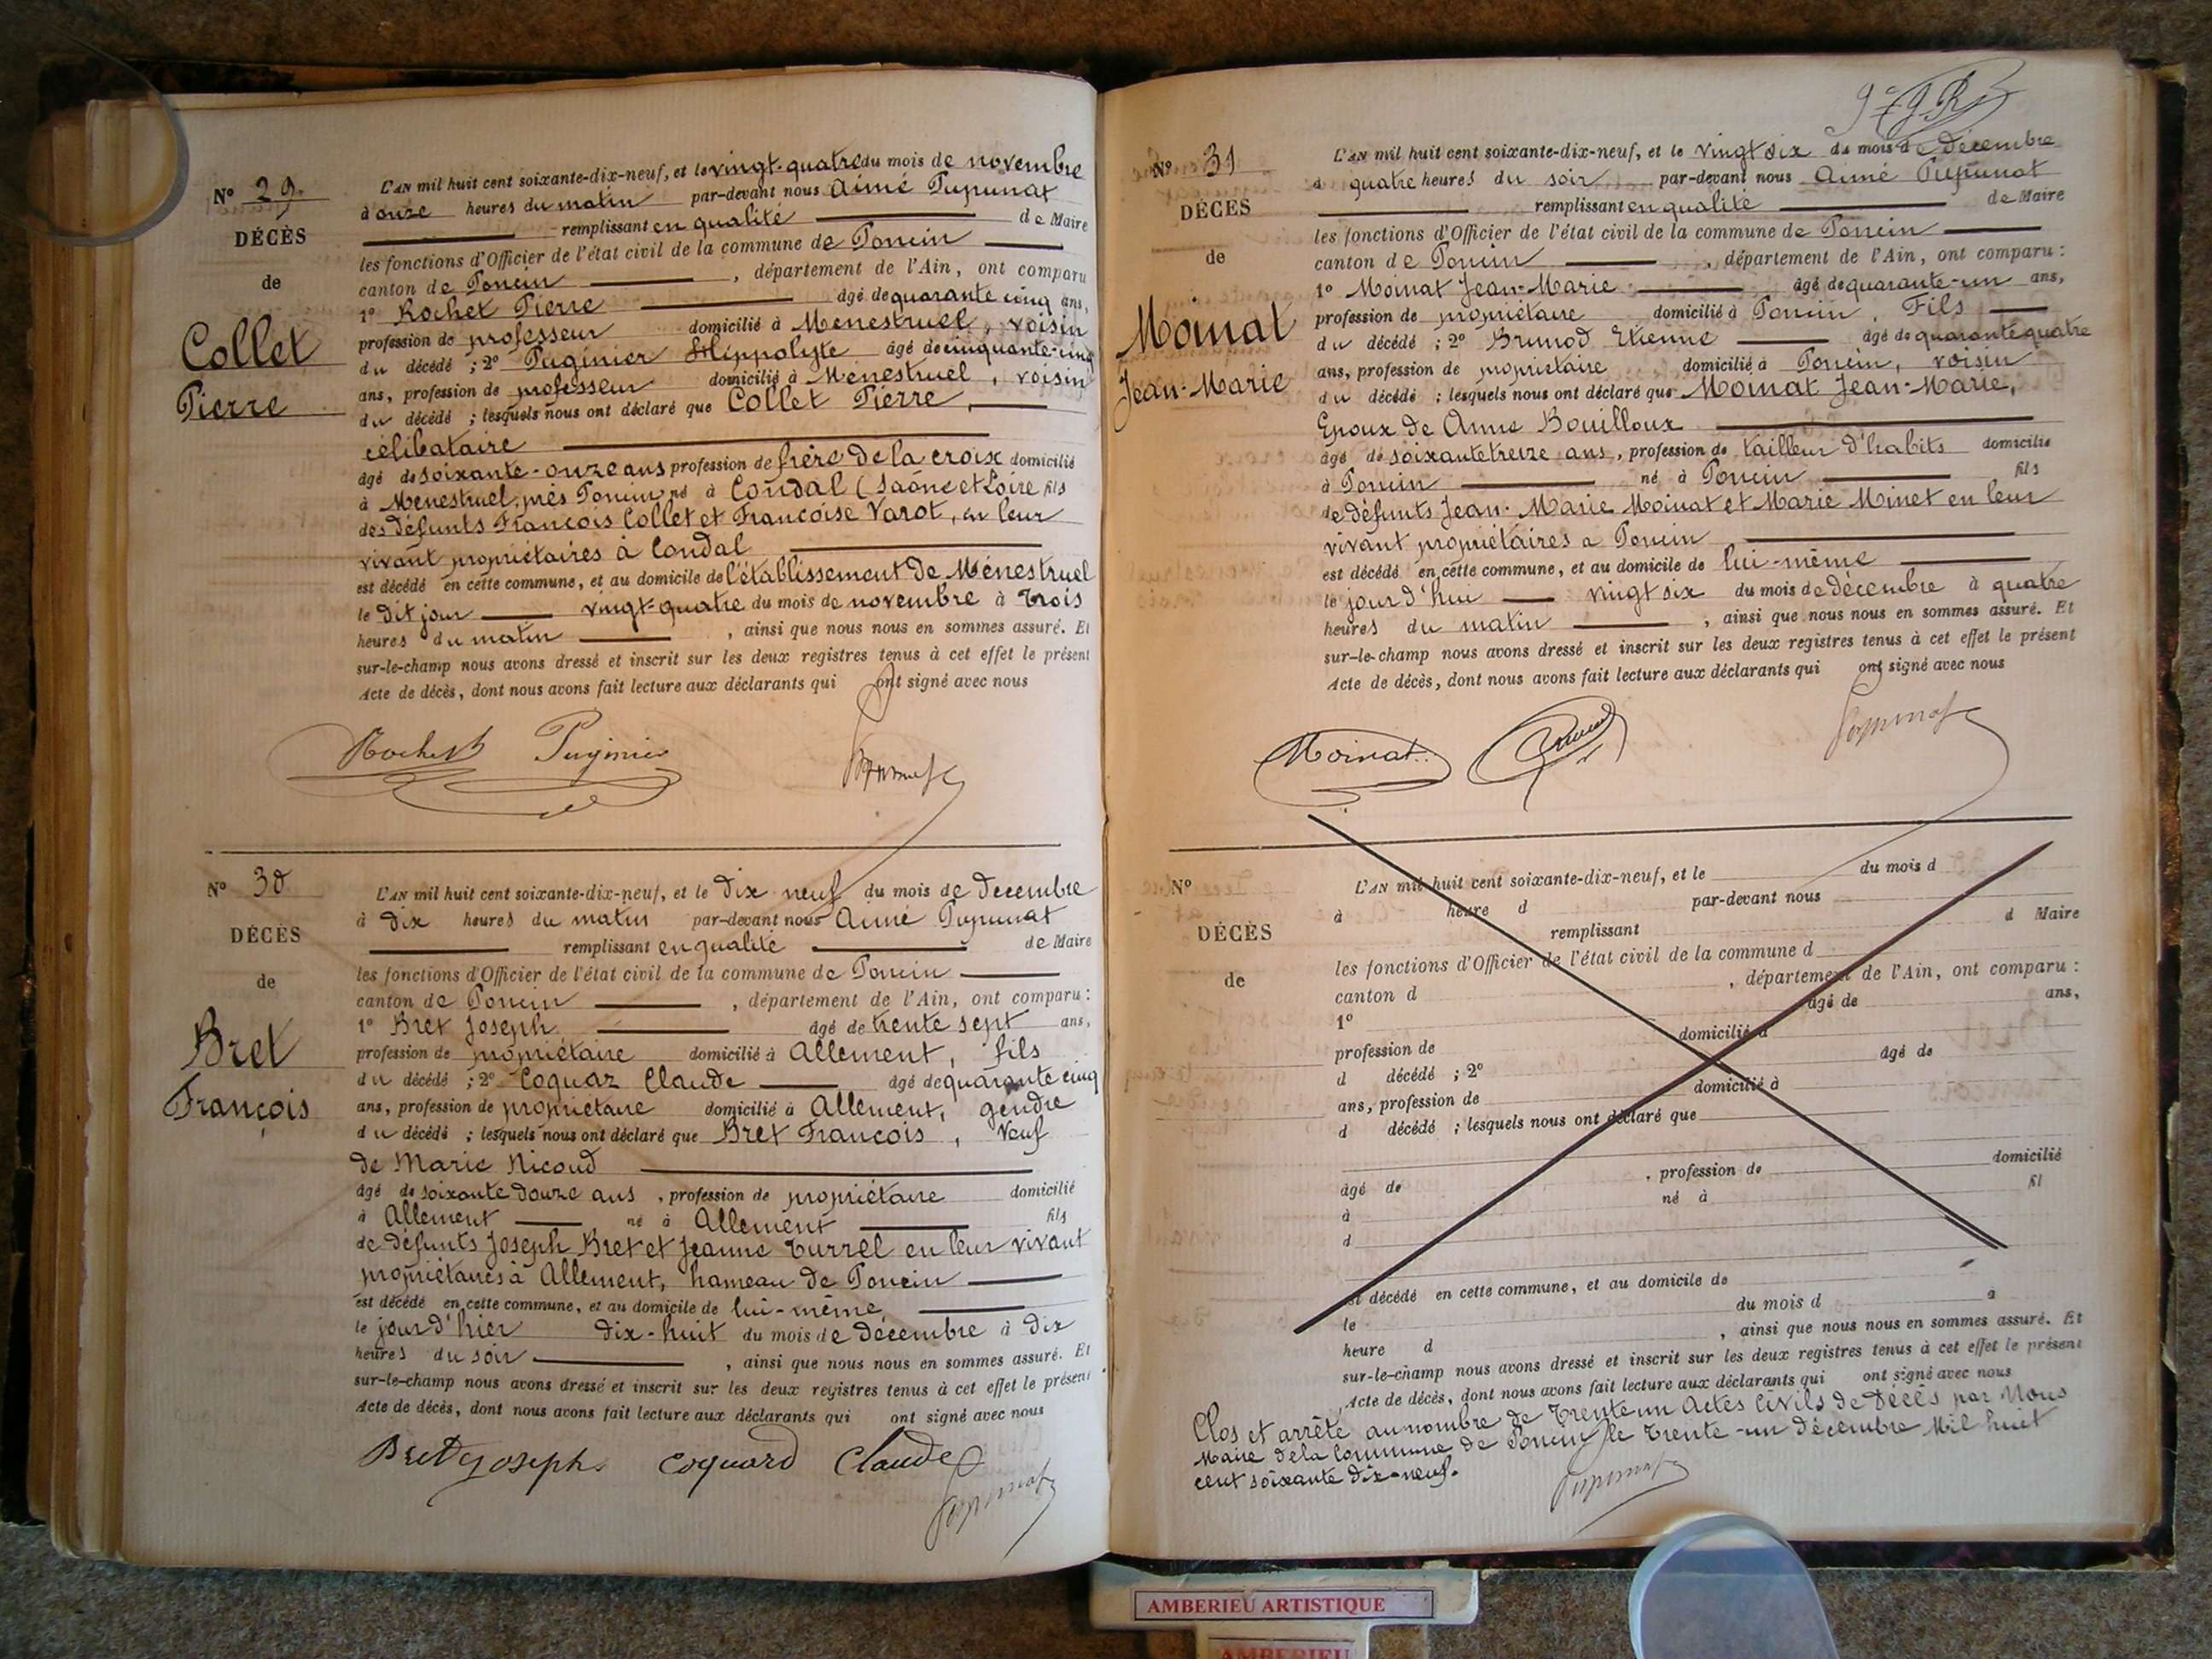 N° 29.
DÉCÈS
de
Collet
Pierre
L'AN mil huit cent soixante-dix-neuf, et le vingt-quatre du mois de novembre
à onze heures du matin par-devant nous Aimé Pupunat
remplissant en qualité de Maire
les fonctions d'Officier de l'état civil de la commune de Poncin
canton de Poncin, département de l'Ain, ont comparu
1° Rochet Pierre âgé de quarante cinq ans,
profession de professeur domicilié à Menestruel, voisin
du décédé ; 2° Puginier Hippolyte âgé de cinquante-cinq
ans, profession de professeur domicilié à Menestruel, voisin
du décédé ; lesquels nous ont déclaré que Collet Pierre,
célibataire
âgé de soixante-onze ans profession de frère de la croix domicilié
à Menestruel, près Poncin né à Condal (Saône et Loire fils
des défunts François Collet et Françoise Varot, en leur
vivant propriétaires à Condal
est décédé en cette commune, et au domicile de l'établissement de Ménestruel
le dit jour vingt-quatre du mois de novembre à trois
heures du matin, ainsi que nous nous en sommes assuré. Et
sur-le-champ nous avons dressé et inscrit sur les deux registres tenus à cet effet le présent
Acte de décès, dont nous avons fait lecture aux déclarants qui ont signé avec nous
Rochet Puginier
Pupunat
N° 30
DÉCÈS
de
Bret
François
L'AN mil huit cent soixante-dix-neuf, et le dix neuf du mois de decembre
à dix heures du matin par-devant nous Aimé Pupunat
remplissant en qualité de Maire
les fonctions d'Officier de l'état civil de la commune de Poncin
canton de Poncin, département de l'Ain, ont comparu :
1° Bret Joseph âgé de trente sept ans,
profession de propriétaire domicilié à Allement, fils
du décédé ; 2° Coquaz Claude âgé de quarante cinq
ans, profession de propriétaire domicilié à Allement, gendre
du décédé ; lesquels nous ont déclaré que Bret François, veuf
de Marie Nicoud
âgé de soixante douze ans, profession de propriétaire domicilié
à Allement né à Allement fils
de défunts Joseph Bret et Jeanne Turrel en leur vivant
propriétaires à Allement, hameau de Poncin
est décédé en cette commune, et au domicile de lui-même
le jour d'hier dix-huit du mois de décembre à dix
heures du soir, ainsi que nous nous en sommes assuré. Et
sur-le-champ nous avons dressé et inscrit sur les deux registres tenus à cet effet le présent
Acte de décès, dont nous avons fait lecture aux déclarants qui ont signé avec nous
Bret joseph coquard Claude
Pupunat
N° 31
DÉCÈS
de
Moinat
Jean-Marie
L'AN mil huit cent soixante-dix-neuf, et le vingt six du mois de décembre
à quatre heures du soir par-devant nous Aimé Pupunat
remplissant en qualité de Maire
les fonctions d'Officier de l'état civil de la commune de Poncin
canton de Poncin, département de l'Ain, ont comparu :
1° Moinat Jean-Marie âgé de quarante-un ans,
profession de propriétaire domicilié à Poncin, Fils
du décédé ; 2° Brunod Etienne âgé de quarante quatre
ans, profession de propriétaire domicilié à Poncin, voisin
du décédé ; lesquels nous ont déclaré que Moinat Jean-Marie,
Epoux de Anne Bouilloux
âgé de soixante treize ans, profession de tailleur d'habits domicilié
à Poncin né à Poncin fils
de défunts Jean-Marie Moinat et Marie Minet en leur
vivant propriétaires a Poncin
est décédé en cette commune, et au domicile de lui-même
le jour d'hui vingt six du mois de décembre à quatre
heures du matin, ainsi que nous nous en sommes assuré. Et
sur-le-champ nous avons dressé et inscrit sur les deux registres tenus à cet effet le présent
Acte de décès, dont nous avons fait lecture aux déclarants qui ont signé avec nous
Moinat Brunod Pupunat
N°
DÉCÈS
de
L'AN mil huit cent soixante-dix-neuf, et le du mois d
à heure d par-devant nous
remplissant d Maire
les fonctions d'Officier de l'état civil de la commune d
canton d , département de l'Ain, ont comparu :
1° âgé de ans,
profession de domicilié à
d décédé ; 2° âgé de
ans, profession de domicilié à
d décédé ; lesquels nous ont déclaré que
âgé de , profession de domicilié
à né à fil
d
est décédé en cette commune, et au domicile de
le du mois d à
heure d , ainsi que nous nous en sommes assuré. Et
sur-le-champ nous avons dressé et inscrit sur les deux registres tenus à cet effet le présent
Acte de décès, dont nous avons fait lecture aux déclarants qui ont signé avec nous
Clos et arrêté au nombre de Trente un Actes Civils de Décès par Nous
Maire de la Commune de Poncin le trente-un décembre Mil huit
cent soixante dix-neuf.
Pupunat
AMBERIEU ARTISTIQUE
AMBERIEU